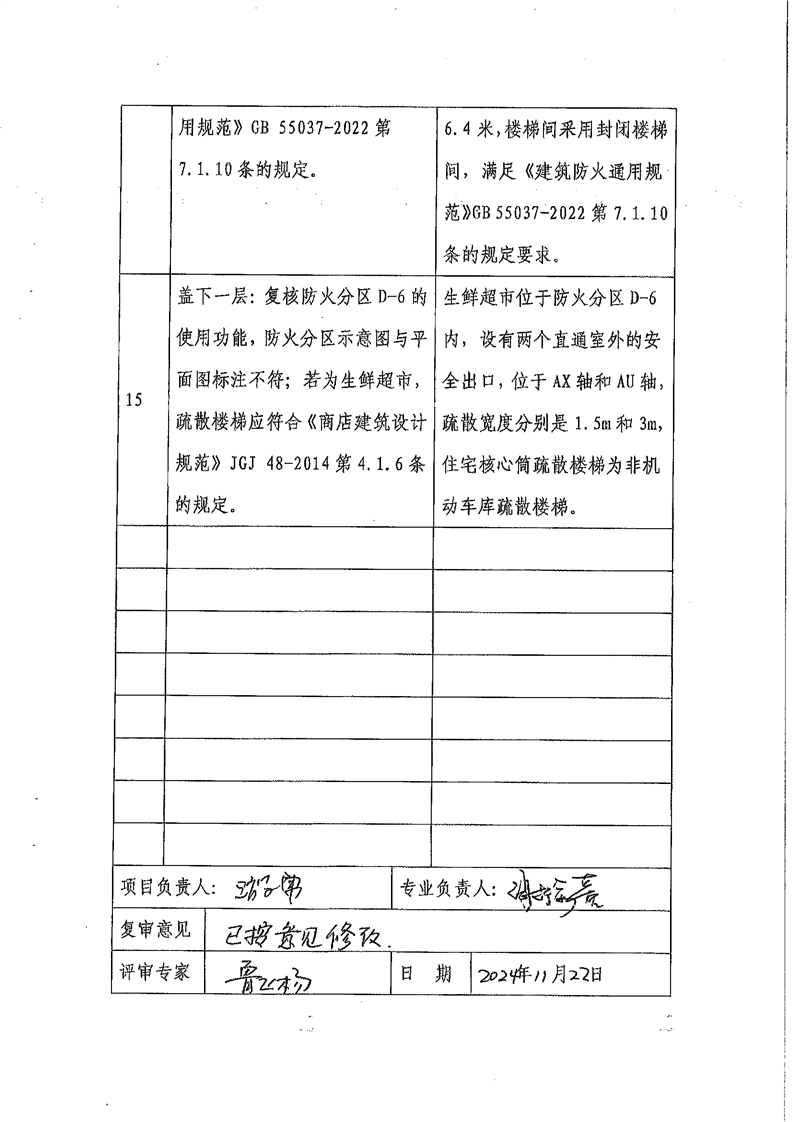 用规范》GB 55037-2022 第
7.1.10 条的规定。
6.4 米，楼梯间采用封闭楼梯
间，满足《建筑防火通用规
范》GB 55037-2022 第 7.1.10
条的规定要求。
15
盖下一层：复核防火分区 D-6 的
使用功能，防火分区示意图与平
面图标注不符；若为生鲜超市，
疏散楼梯应符合《商店建筑设计
规范》JGJ 48-2014 第 4.1.6 条
的规定。
生鲜超市位于防火分区 D-6
内，设有两个直通室外的安
全出口，位于 AX 轴和 AU 轴，
疏散宽度分别是 1.5m 和 3m，
住宅核心筒疏散楼梯为非机
动车库疏散楼梯。
项目负责人：
专业负责人：
复审意见
已按意见修改.
评审专家
日 期
2024年11月27日